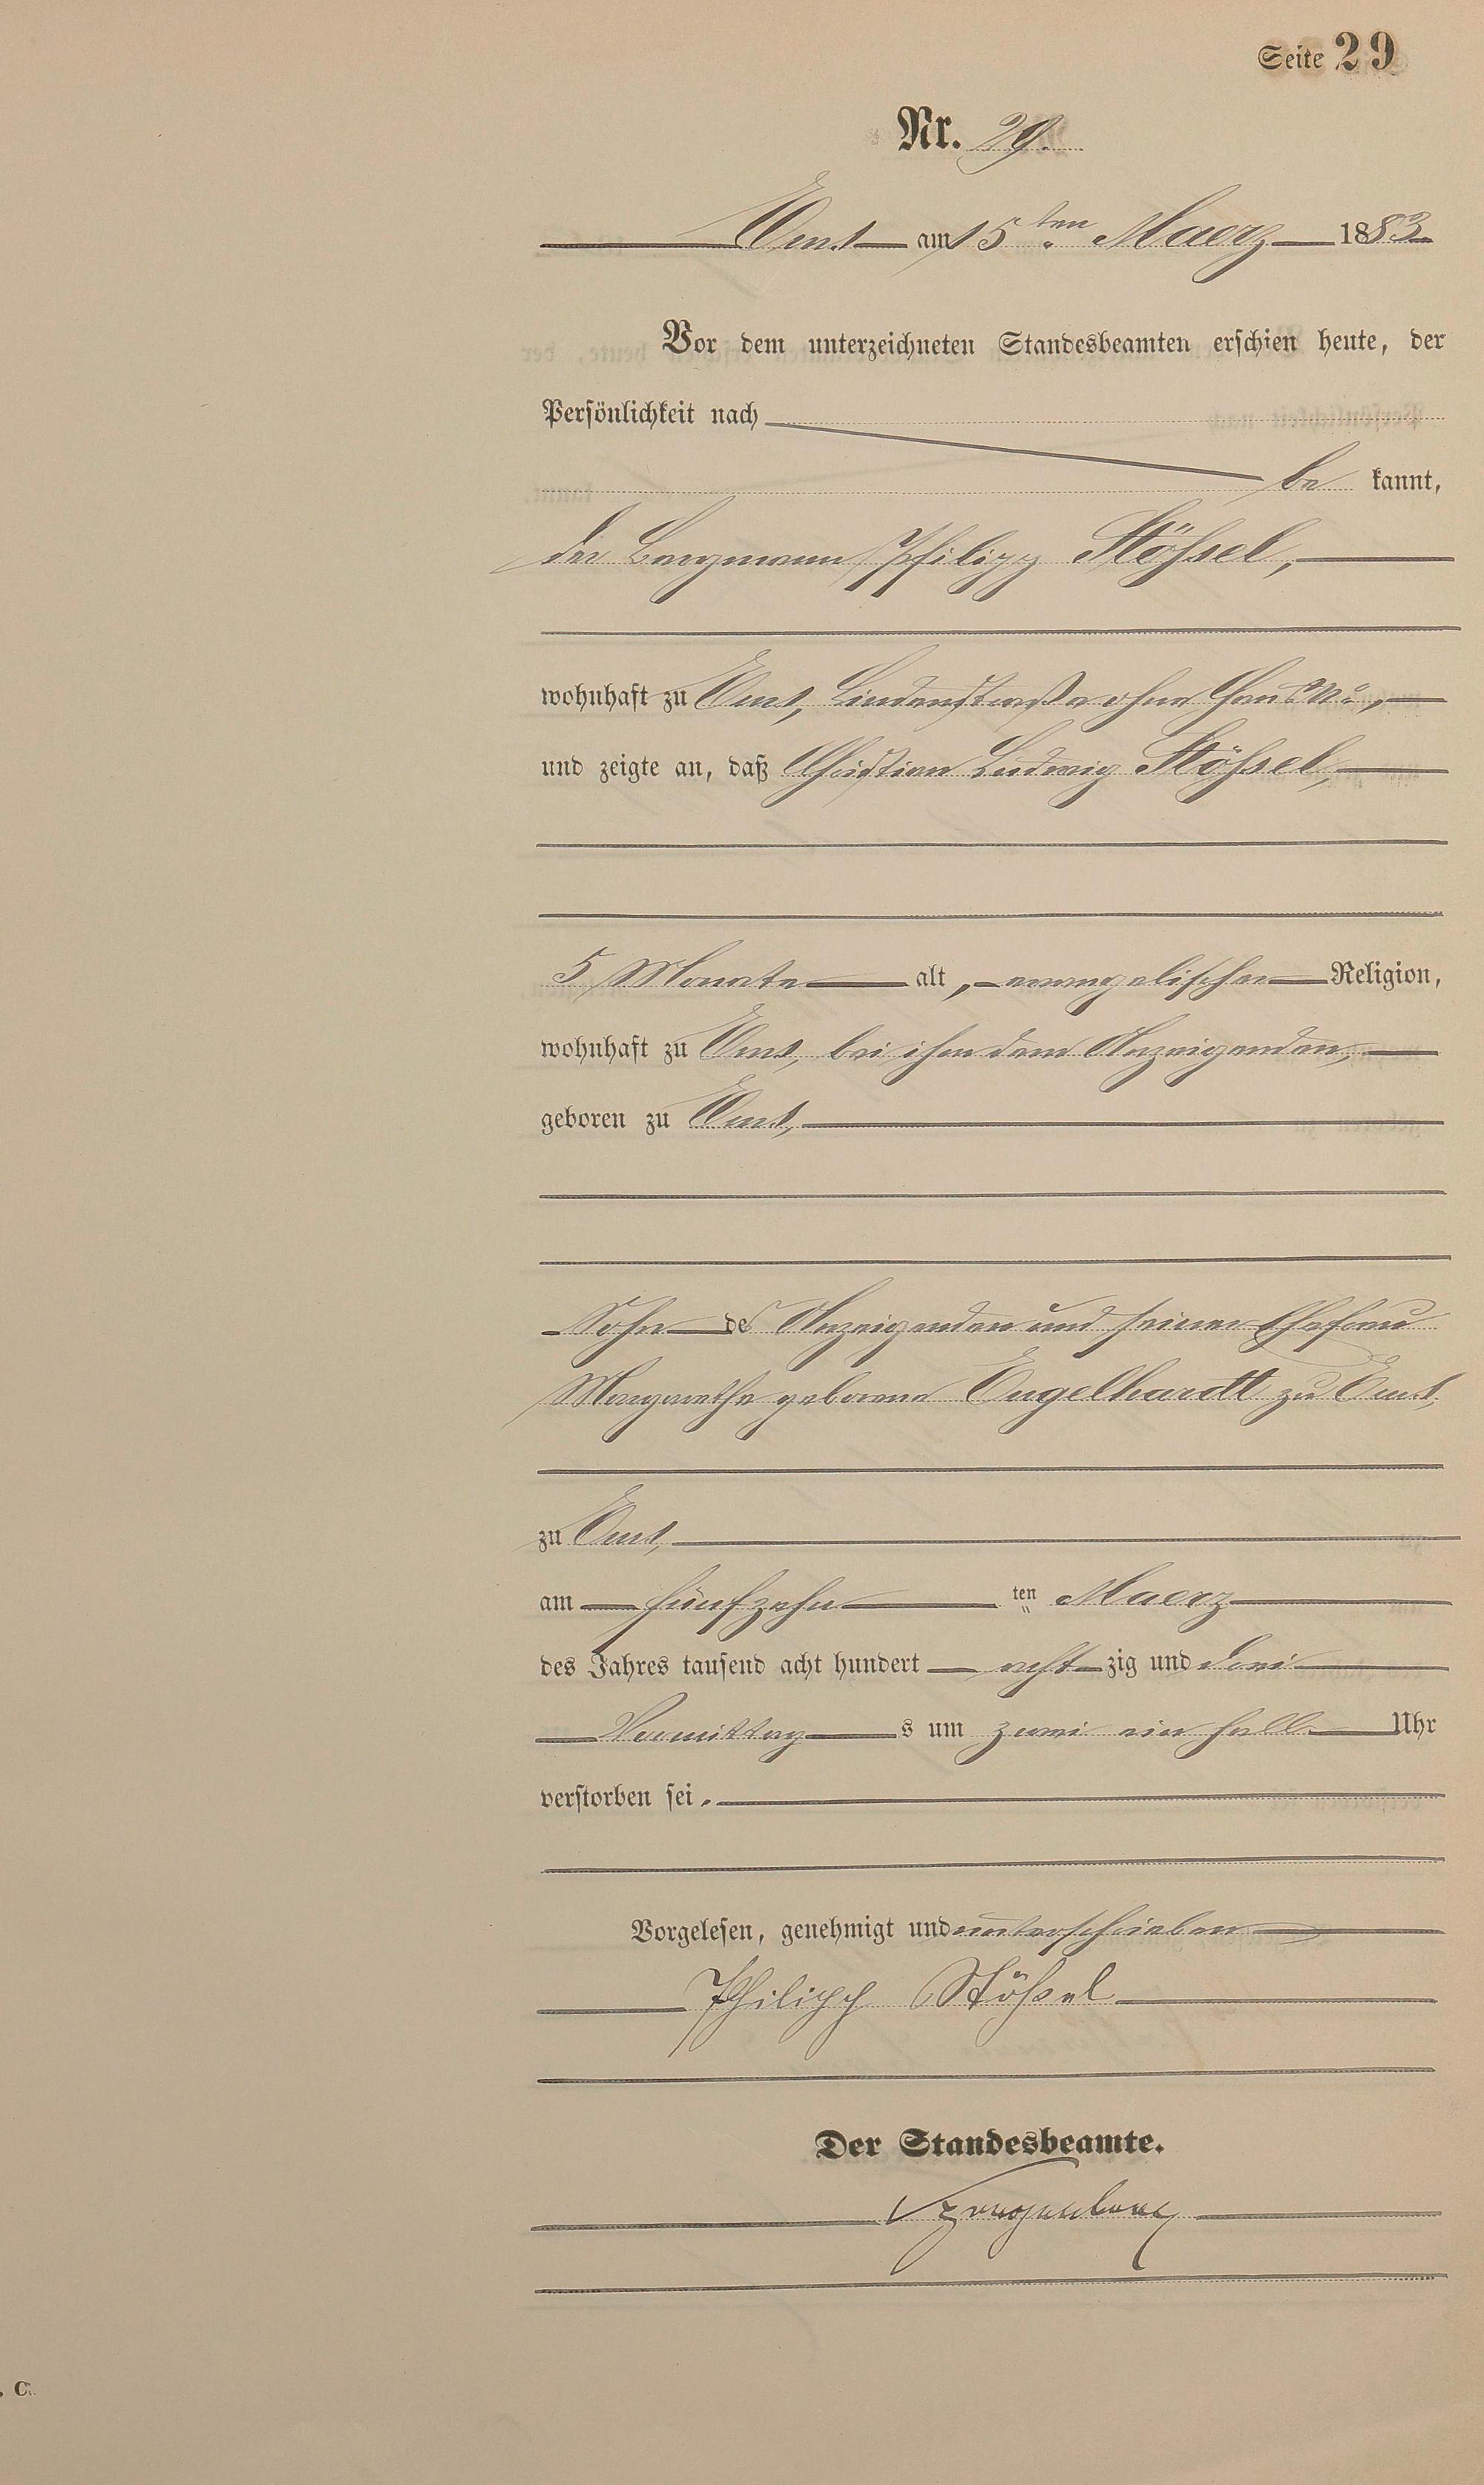 Seite 29
Nr. 29.
Ems am 15ten Maerz 1883.
Vor dem unterzeichneten Standesbeamten erschien heute, der
Persönlichkeit nach
be kannt,
der Bergmann Philipp Stößel,
wohnhaft zu Ems, Lindenstraße ohne Haus No,
und zeigte an, daß Christian Ludwig Stößel,
5 Monate alt, evangelischer Religion,
wohnhaft zu Ems, bei ihm dem Anzeigenden,
geboren zu Ems,
Sohn des Anzeigenden und seiner Ehefrau
Margarethe geborene Engelhardt zu Ems,
zu Ems,
am fünfzehn ten Maerz
des Jahres tausend acht hundert acht zig und drei
Vormittag s um zwei ein halb Uhr
verstorben sei.
Vorgelesen, genehmigt und unterschrieben
Philipp Stößel
Der Standesbeamte.
. C.